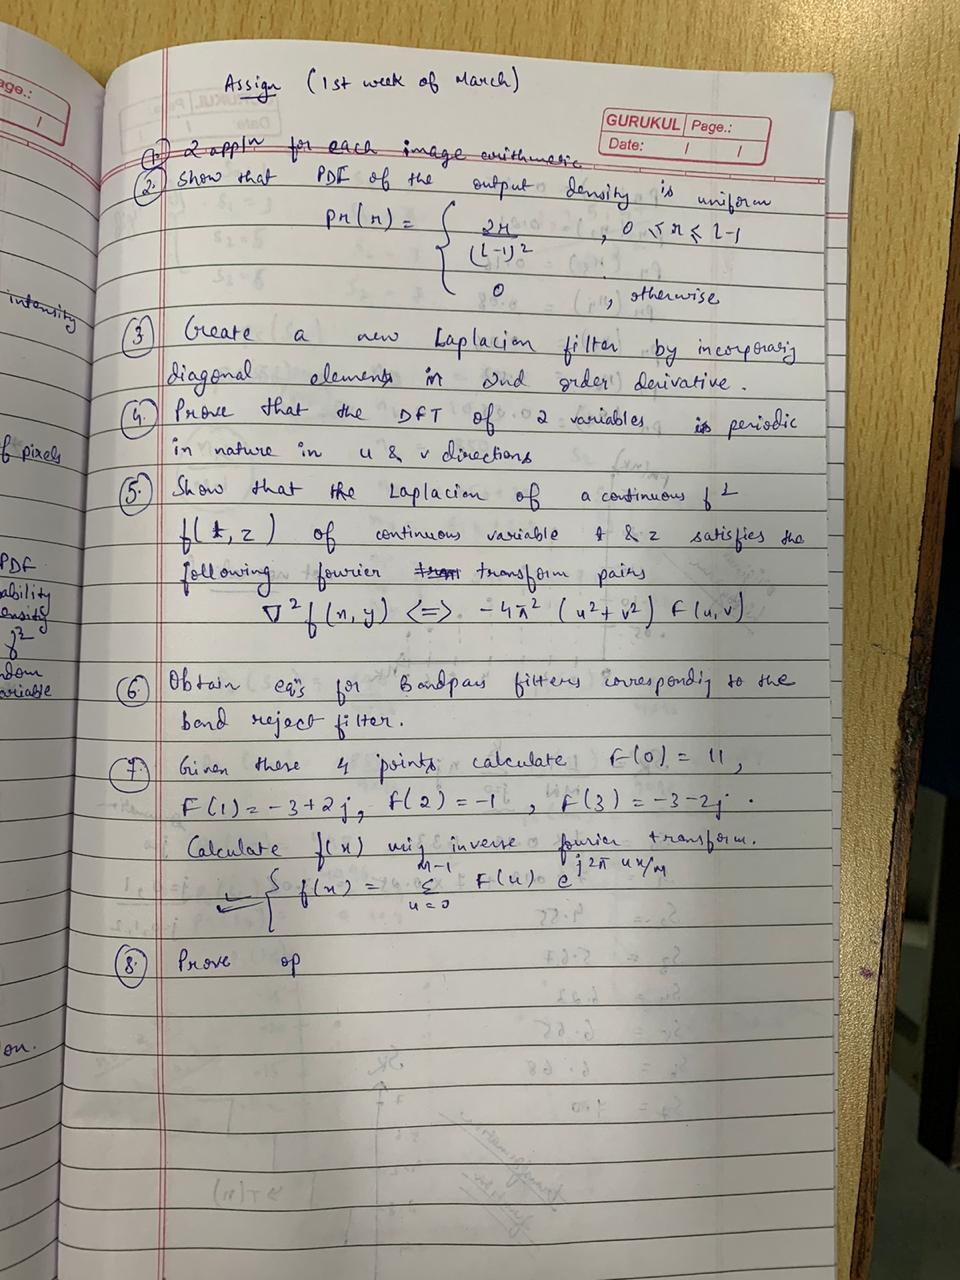 Assign (1st week of March)
GURUKUL Page.:
Date: / /
age.:
/
1. 2 appln for each image arithmetic
2. Show that PDF of the output density is uniform
pr(r) = { 2r/(L-1)² , 0 ≤ r ≤ L-1
0 , otherwise
3 Create a new Laplacian filter by incorporatig
diagonal elements in 2nd order derivative.
4. Prove that the DFT of 2 variables is periodic
in nature in u & v directions
5. Show that the Laplacian of a continuous fⁿ
f(t, z) of continuous variable t & z satisfies the
following fourier transform pairs
∇²f(x,y) <=> -4π² (u²+v²) F(u,v)
6. Obtain eqⁿs for Bandpass filters correspondig to the
band reject filter.
7. Given these 4 points calculate F(0) = 11,
F(1) = -3+2j, F(2) = -1 , F(3) = -3-2j .
Calculate f(x) usig inverse fourier transform.
{ f(x) = M-1 Σ u=0 F(u) e^(j2π ux/M)
8. Prove op
intensity
of pixels
PDF
ability
ensity
fⁿ
ndom
ariable
on.